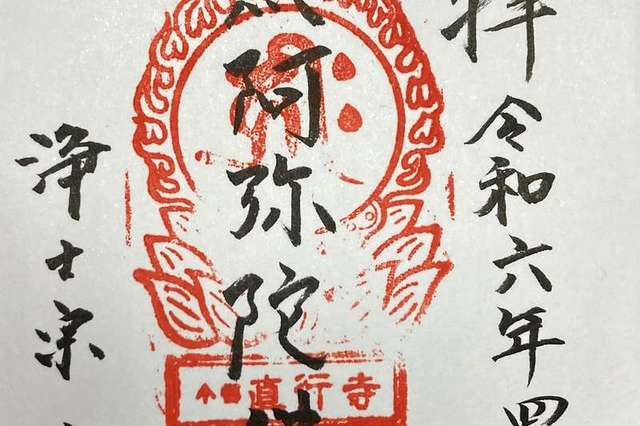 拝
令和六年四
無阿弥陀佛
浄土宗
直行寺